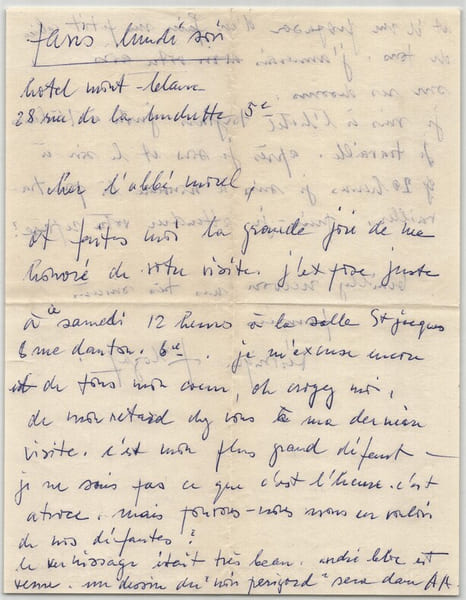 Paris lundi soir
hotel mont-blanc
28 rue de la huchette 5e
cher l'abbé morel,
et faites moi la grande joie de me
honoré de votre visite. j'expose juste
à ce samedi 12 heures à la salle St jacques
6 rue danton. 6e. je m'excuse encore
de tous mon coeur, oh croyez moi,
de mon retard chez vous à ma dernière
visite. c'est mon plus grand défaut —
je ne sais pas ce que c'est l'heure. c'est
atroce. mais pouvons-nous nous en vouloir
de nos défauts?
le vernissage était très beau. andré lhote est
venu. un dessin du "noir périgord" sera dans